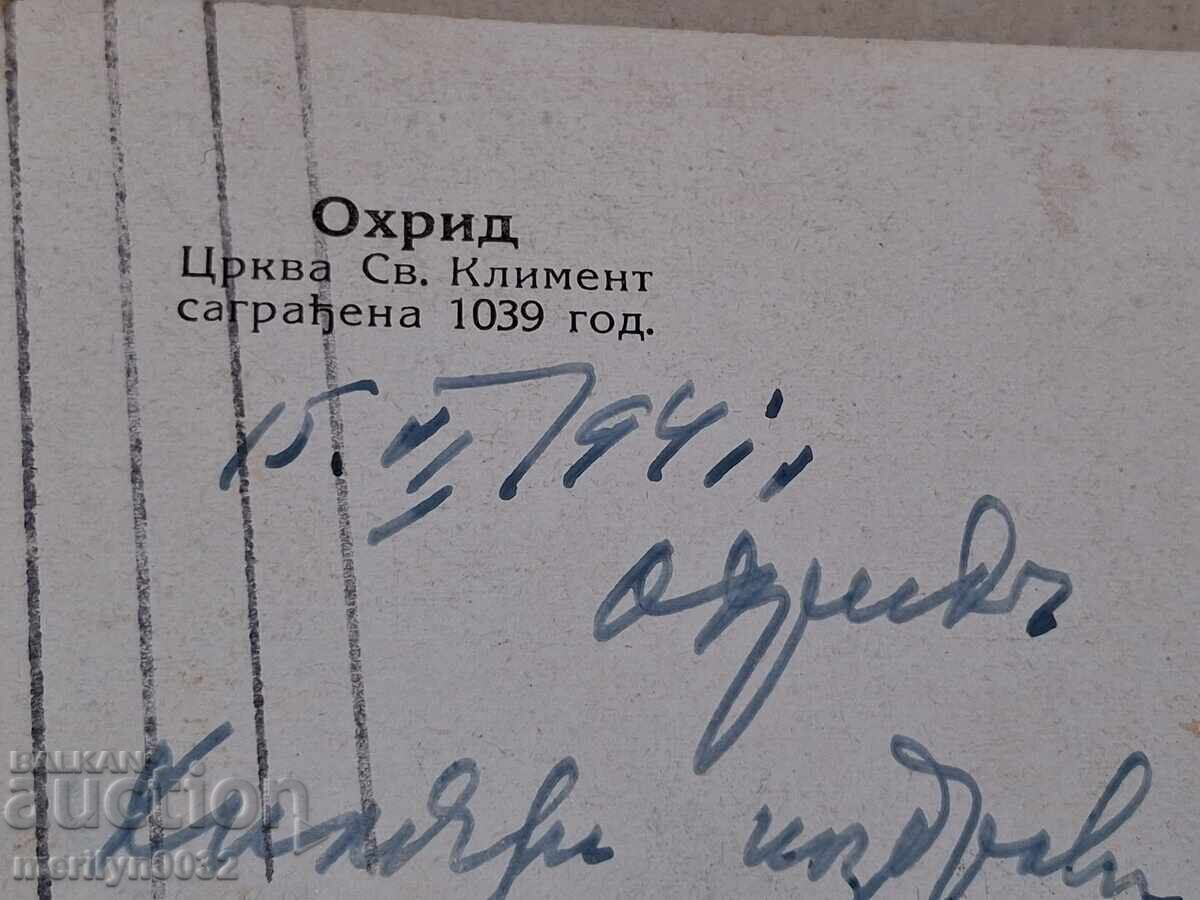 Охрид
Црква Св. Климент
саграђена 1039 год.
15. VI 1941 г.
Охридъ
BALKAN
auction
merilyn0032